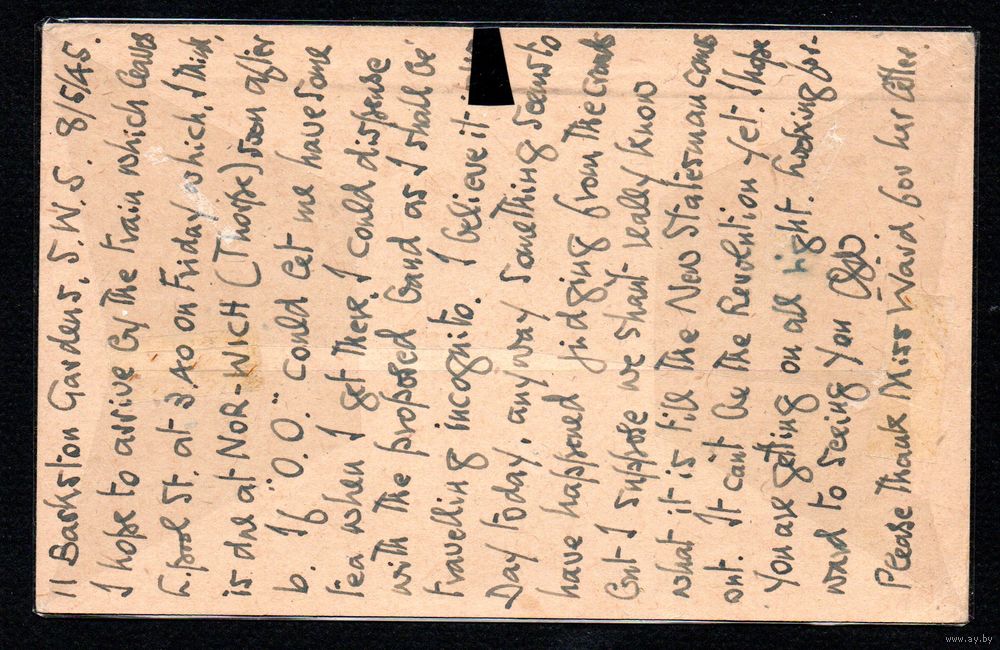 11 Barkston Gardens, S.W.5. 8/5/45.
I hope to arrive by the train which leaves
L.pool St. at 3.40 on Friday which, I think,
is due at NOR-WICH (Thorpe) soon after
6. If "O.O." could let me have some
tea when I get there, I could dispense
with the proposed band as I shall be
travelling incognito. I believe it
Day today, anyway something seems to
have happened judging from the crowds
but I suppose we shan't really know
what it is till the New Statesman comes
out. It can't be the Revolution yet. I hope
you are getting on all right. Looking for-
ward to seeing you
Please thank Miss Ward for her letter.
www.ay.by